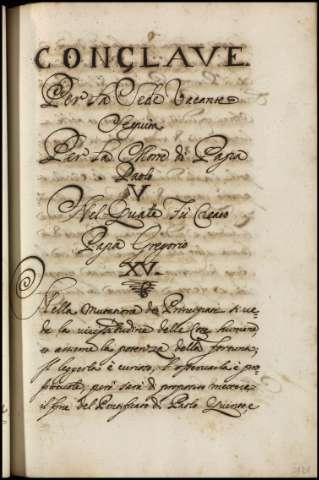 CONCLAVE
Per la Sede Vacante
Seguita
Per la Morte di Papa
Paolo
V
Nel Quale Fù Creato
Papa Gregorio
XV.
Nella mutatione de Principati si ve=
de la vicissitudine delle Cose humane
e assieme la potenza della fortuna,
il leggerla è curioso, l'osservarla è pro=
però sarà à proposito mettere
il fine del Pontificato di Paolo Quinto, e